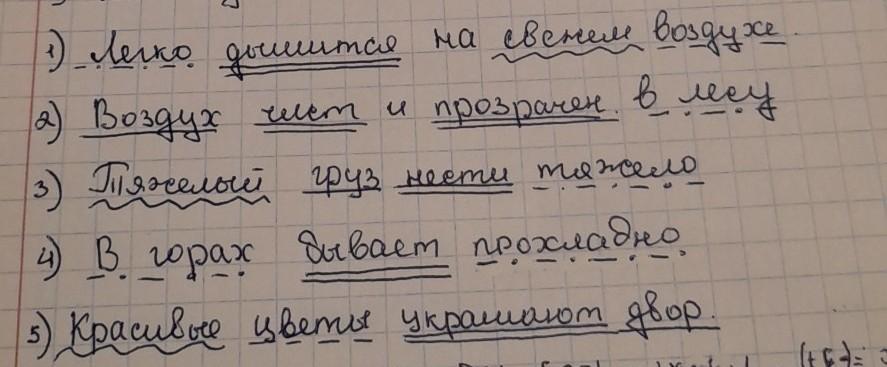 1) Легко дышится на свежем воздухе.
2) Воздух чист и прозрачен в лесу
3) Тяжелый груз нести тяжело
4) В горах бывает прохладно.
5) Красивые цветы украшают двор.